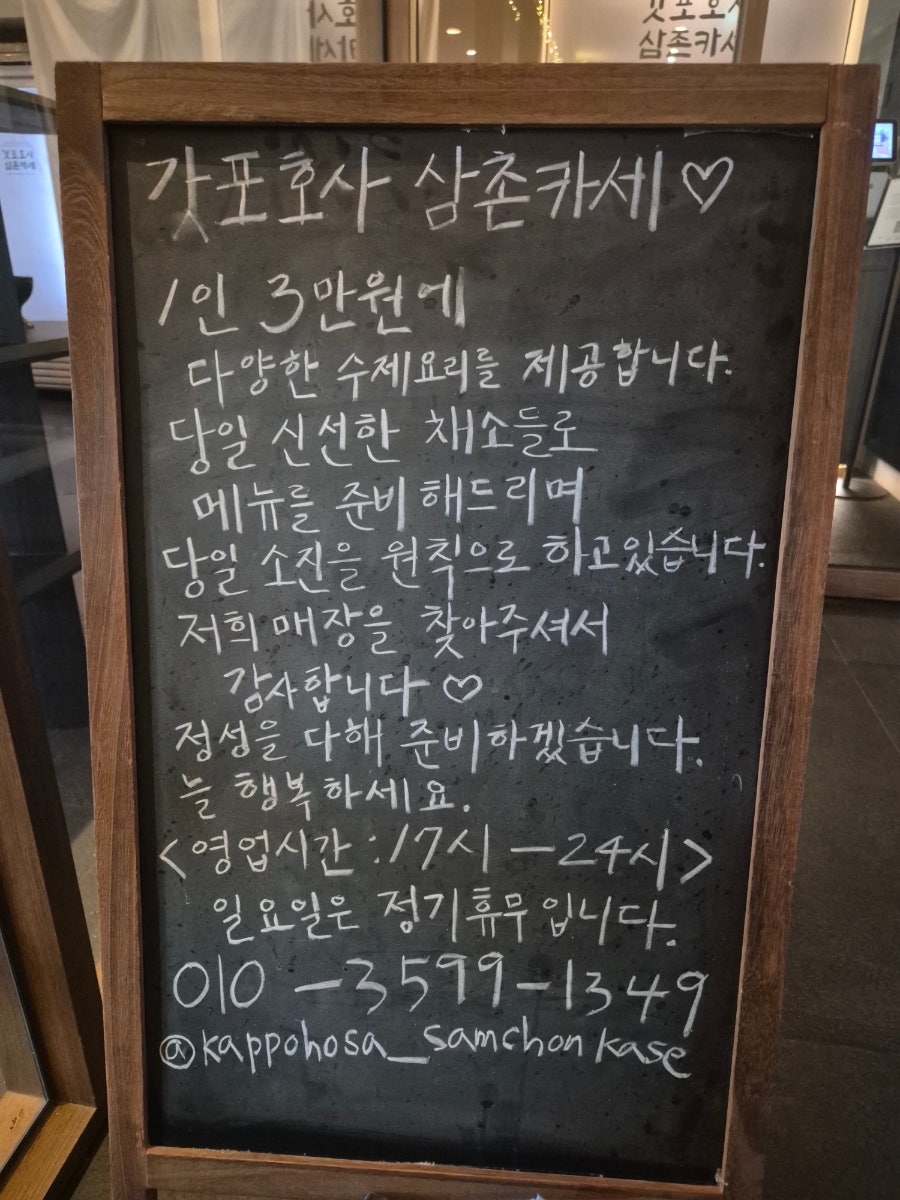 갓포호사
삼촌카세
갓포호사 삼촌카세♡
1인 3만원에
다양한 수제요리를 제공합니다.
당일 신선한 채소들로
메뉴를 준비해드리며
당일 소진을 원칙으로 하고있습니다.
저희 매장을 찾아주셔서
감사합니다♡
정성을 다해 준비하겠습니다.
늘 행복하세요.
<영업시간 : 17시 - 24시>
일요일은 정기휴무입니다.
010 - 3599 - 1349
@kappohosa_samchonkase